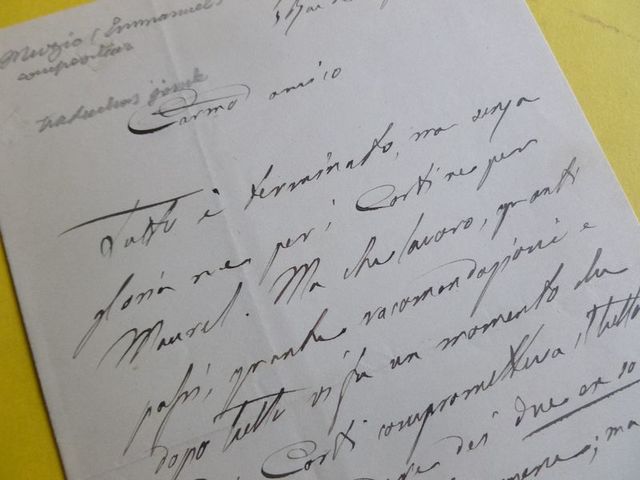 Muzio (Emmanuel)
compositeur
traduction jointe
Carmo amico
Tutto è terminato, ma senza
gloria nè per i Corti nè per
Maurel. Ma che lavoro, quanti
passi, quante racomandazioni e
dopo tutto vi fu un momento che
Corti comprometteva tutto
dei due
; ma